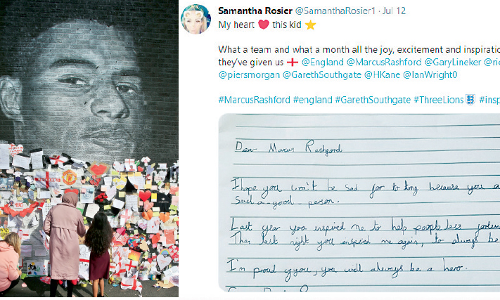 Samantha Rosier @SamanthaRosier1 · Jul 12
My heart ❤️ this kid ⭐
What a team and what a month all the joy, excitement and inspiratio
they've given us @England @MarcusRashford @GaryLineker @ri
@piersmorgan @GarethSouthgate @HKane @IanWright0
#MarcusRashford #england #GarethSouthgate #ThreeLions #insp
Dear Marcus Rashford
I hope you won't be sad for to long because you a
Such a good person.
Last year you inspired me to help people less
Then last night you inspired me again, to always be
I'm proud of you, you will always be a hero.